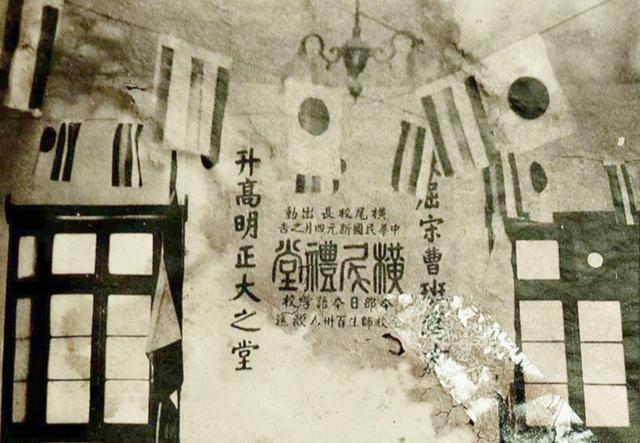 屈宋曹班
橫尾校長出勤
中華民國新元四月之吉
橫尾禮堂
日本語學校
校師生百卅人敬送
升高明正大之堂